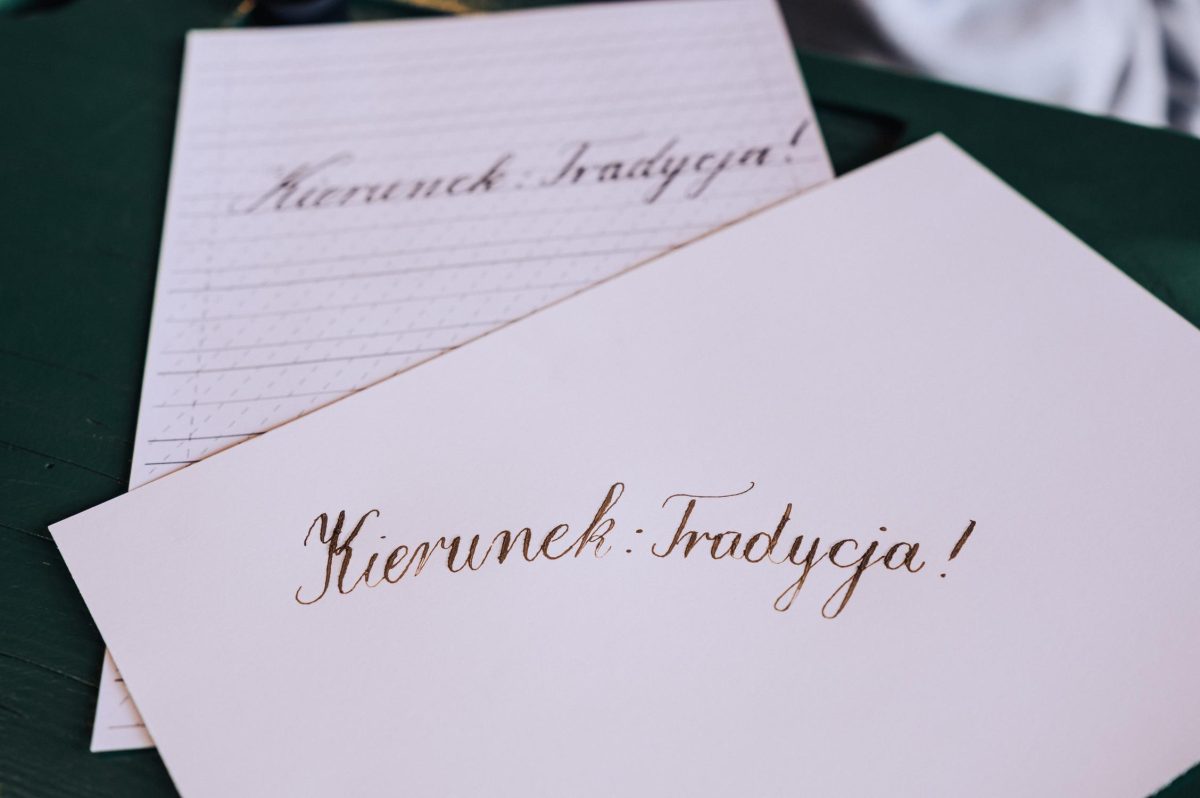 Kierunek: Tradycja!
Kierunek: Tradycja!